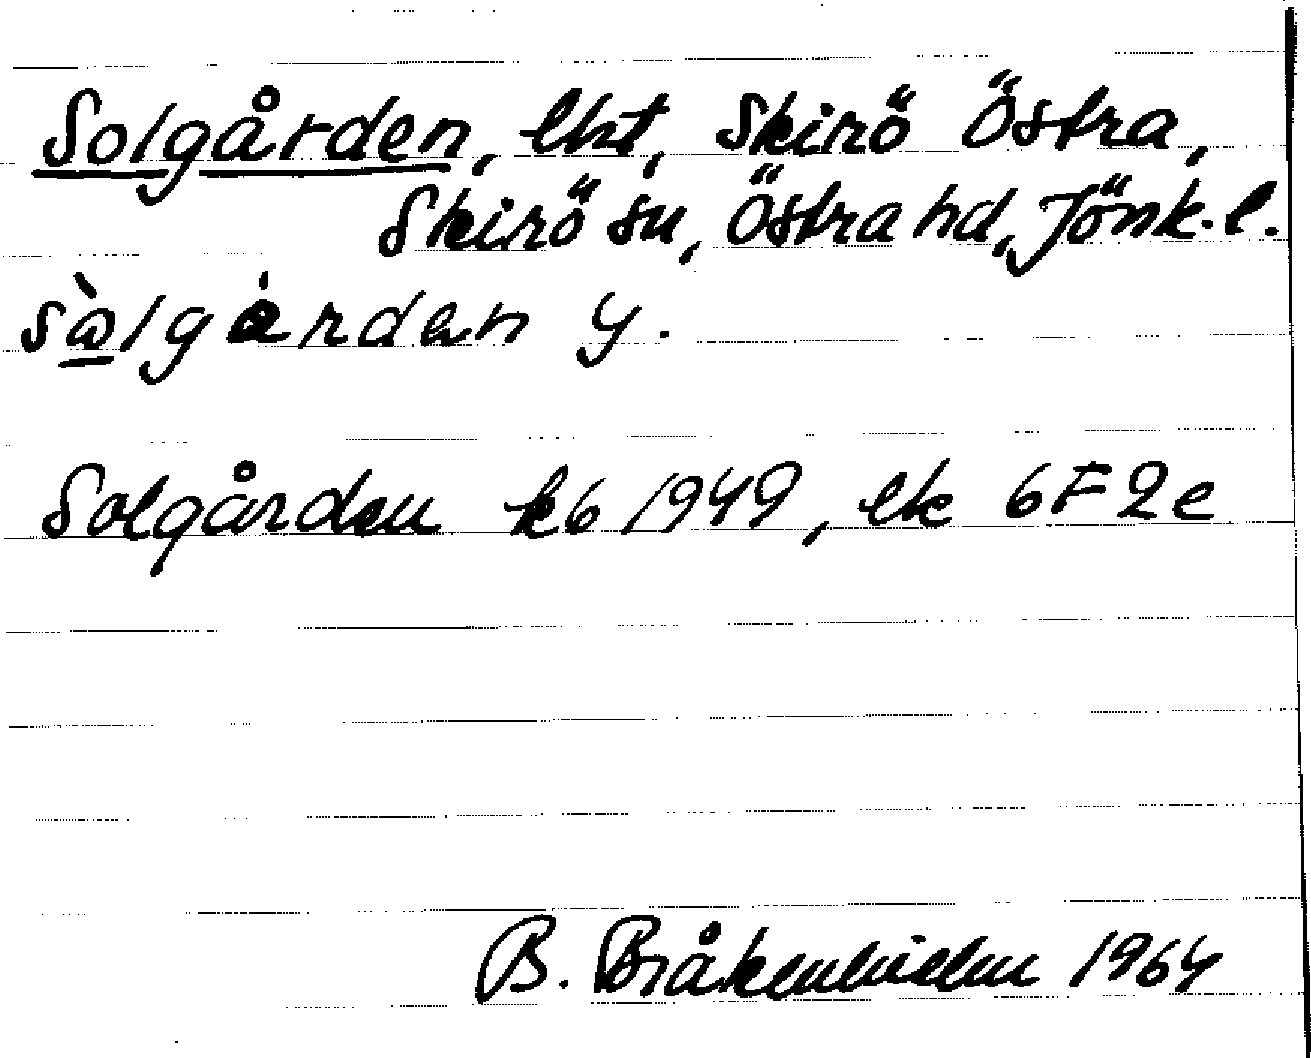 Solgården, lht, Skirö Östra,
Skirö sn, Östra hd, Jönk. l.
sòlgárdan y.
Solgården k6 1949, ek 6F2e
B. Bråkenhielm 1964